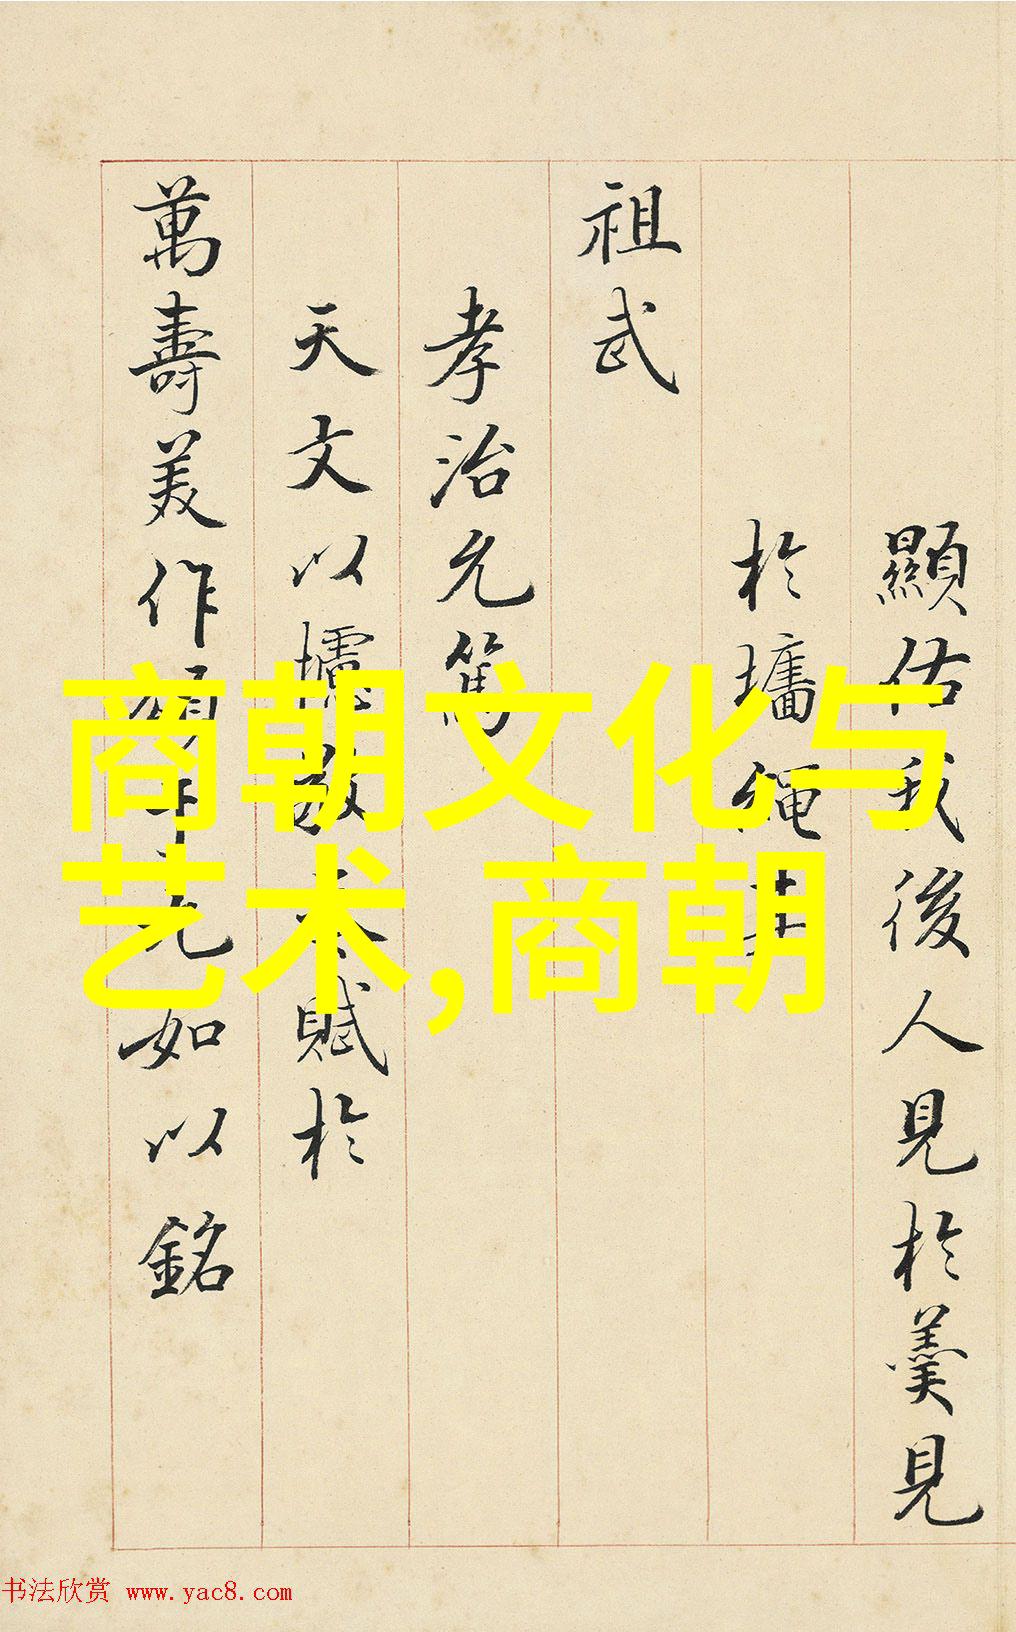 顯佑我後人見於羹見
於墻繩其
祖武
孝治允篤
天文以攄敬奉賦於
萬壽美作頌 如以銘
商朝文化与
艺术,商朝
书法欣赏 www.yac8.com